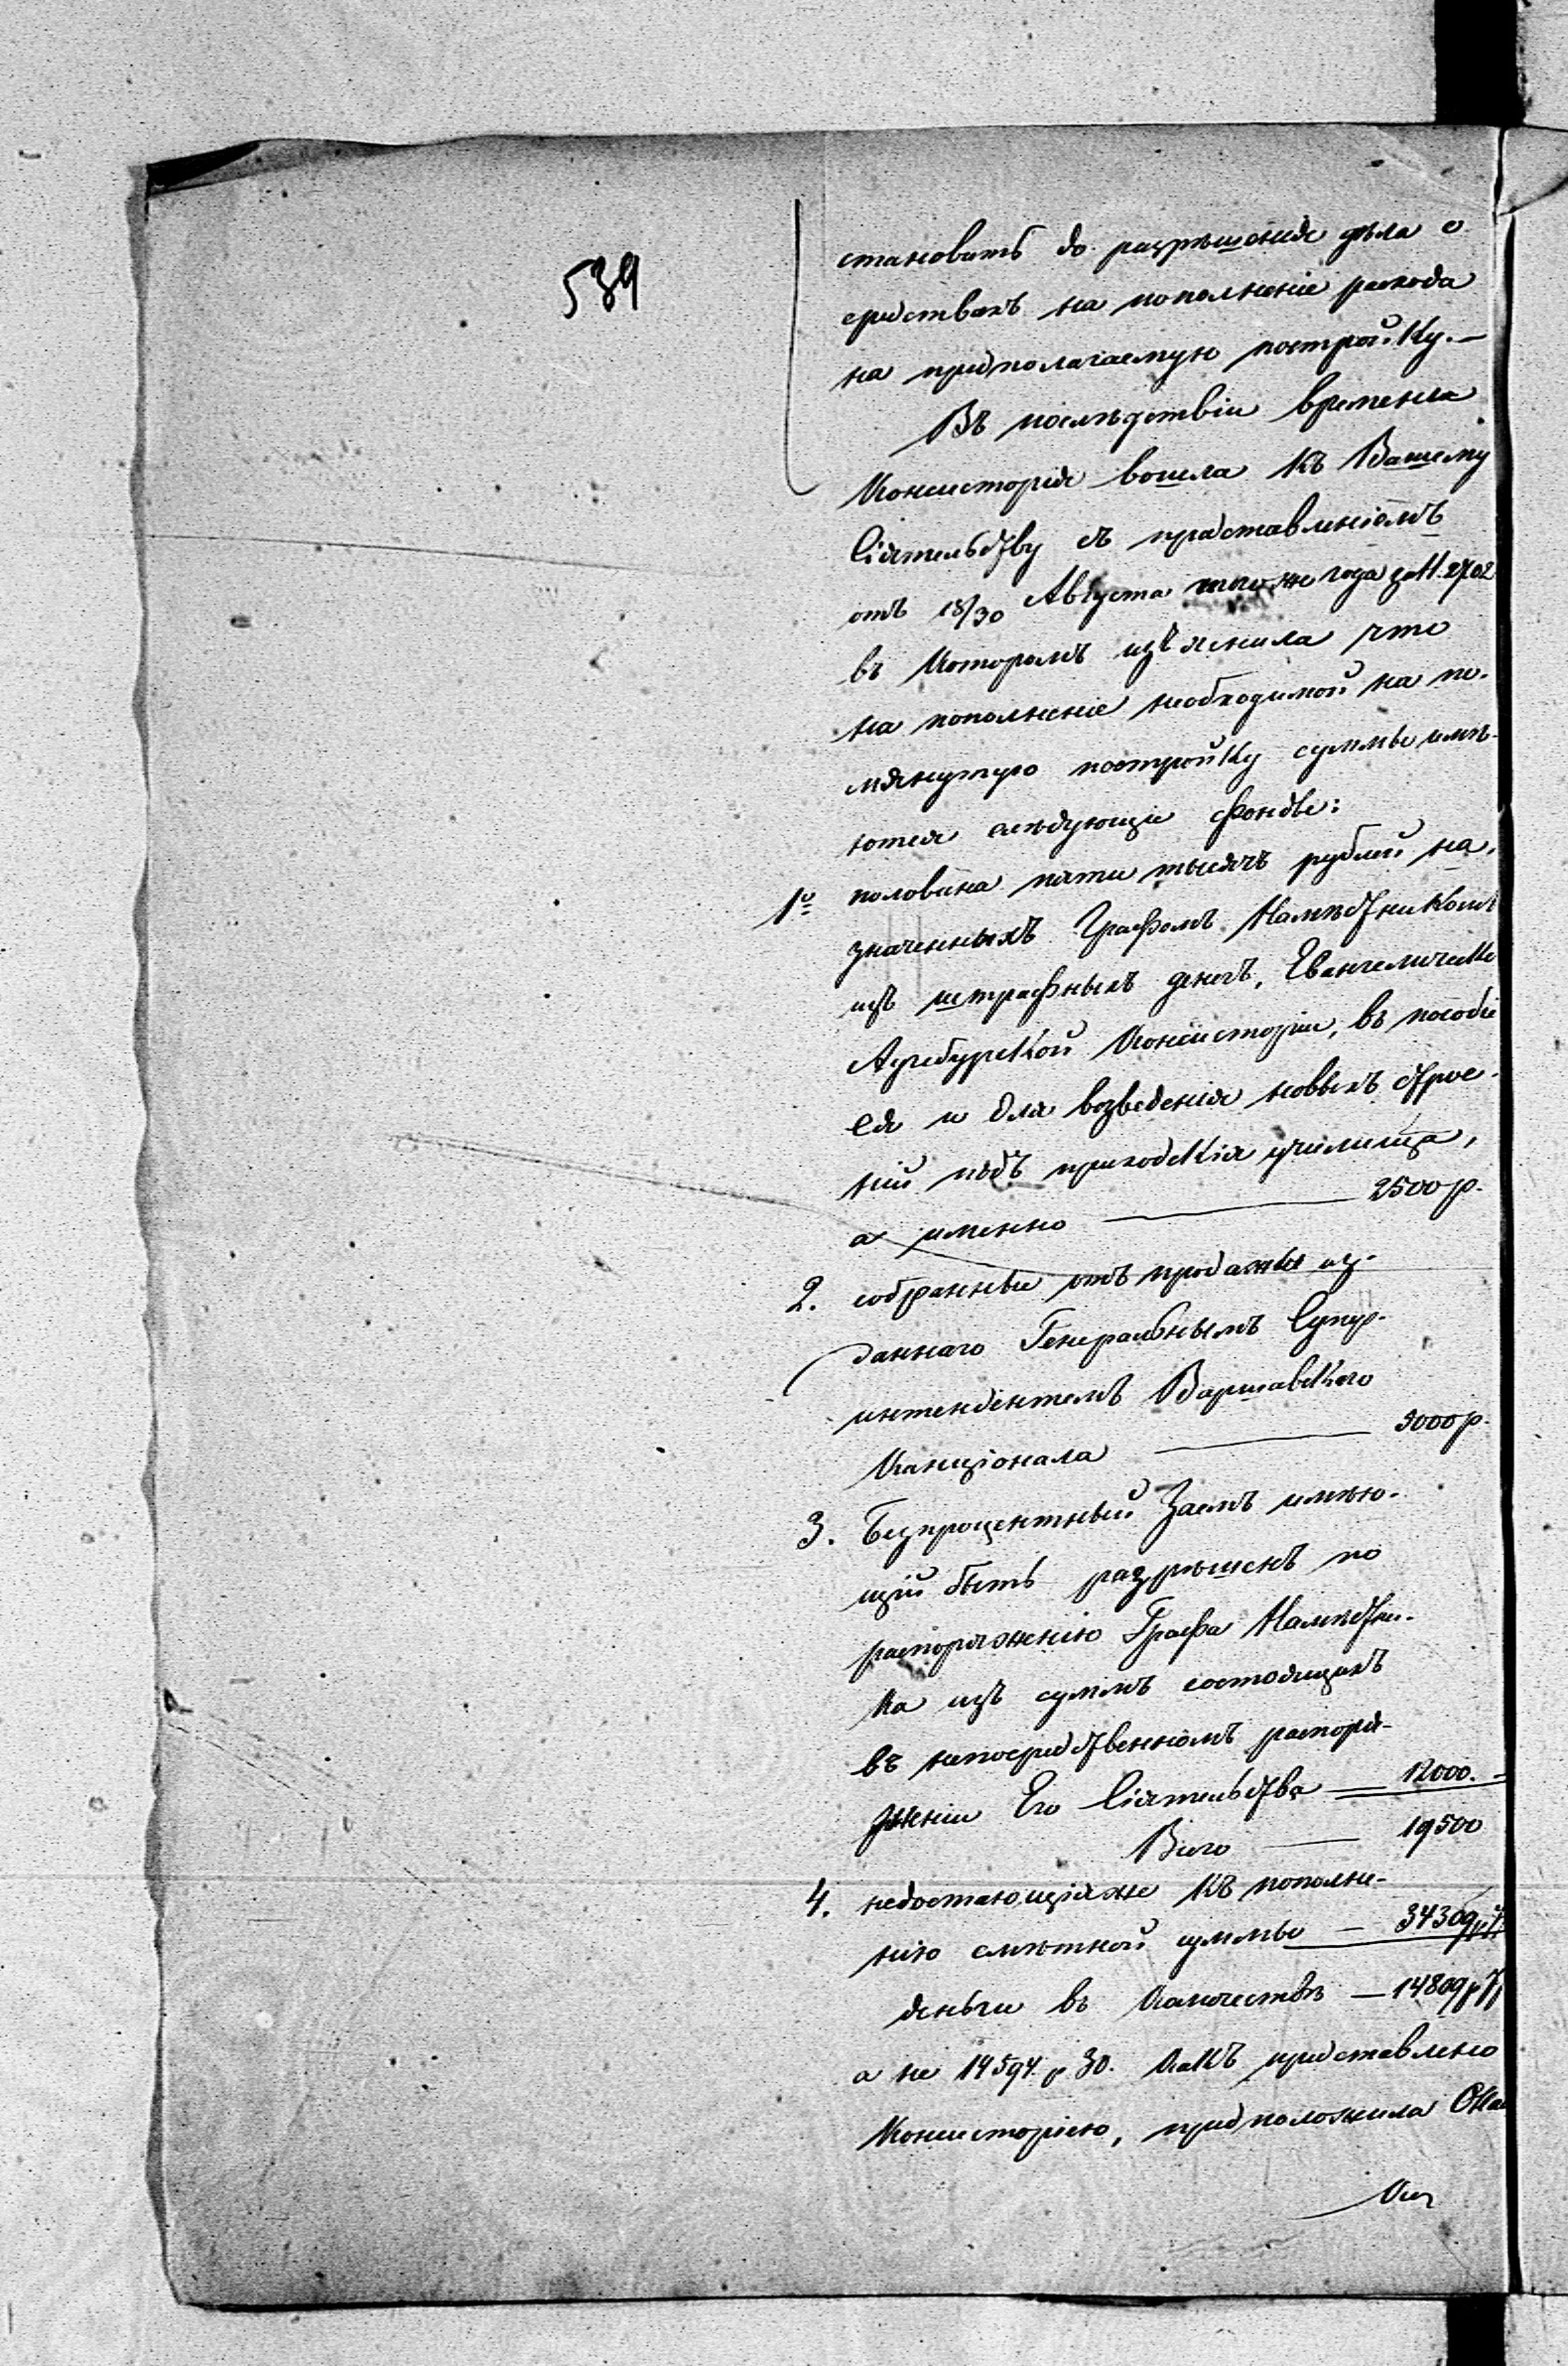 539
становить до разрѣшенія дѣла о
средствахъ на пополненіе расхода
на предполагаемую постройку.—
Въ послѣдствіи времени
Консисторія вошла къ Вашему
Сіятельству съ представленіемъ
отъ 18/30 Августа того же года за N. 2702
въ которомъ изъяснила что
на пополненіе необходимой на по-
мянутую постройку суммы имѣ-
ются слѣдующіе фонды:
1º половина пяти тысячъ рублей на-
значенныхъ Графомъ Намѣстникомъ
изъ штрафныхъ денегъ, Евангелическо
Аугсбургской Консисторіи, въ пособіе
ея и для возведенія новыхъ строе-
ній подъ приходскія училища,
а именно — 2500 р.
2. собранные отъ продажи из-
даннаго Генеральнымъ Супер-
интендентомъ Варшавскаго
Канціонала — 5000 р.
3. Безпроцентный Заемъ имѣю-
щій быть разрѣшенъ по
распоряженію Графа Намѣстни-
ка изъ суммъ состоящихъ
въ непосредственномъ распоря-
женіи Его Сіятельства — 12000. -
Всего — 19500
4. недостающія же къ пополне-
нію смѣтной суммы — 34309 р.
деньги въ количествѣ — 14809 р.
а не 14594 р 30. какъ представлено
Консисторіею, предположила Она